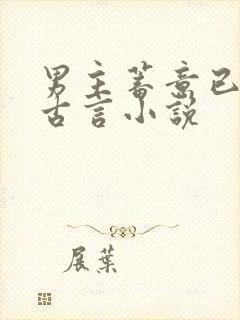 男主蓄意已
古言小説
展葉